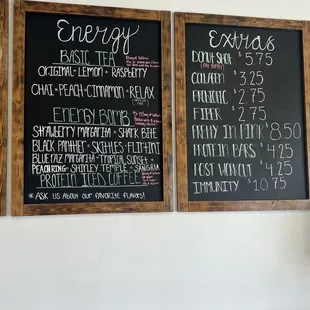 Energy
BASIC TEA
ORIGINAL - LEMON - RASPBERRY
CHAI - PEACH - CINNAMON - RELAX
ENERGY BOMB
STRAWBERRY MARGARITA - SHARK BITE
BLACK PANTHER - SKITTLES - FLINTINI
BLUE RAZ MARGARITA - TROPICAL SUNSET -
PEACH RING - SHIRLEY TEMPLE - SANGRIA
PROTEIN ICED COFFEE
* ASK US ABOUT OUR FAVORITE FLAVORS!
Extras
DONUT SHOT $5.75
COLLAGEN $3.25
PREBIOTIC $2.75
FIBER $2.75
PRETTY IN PINK $8.50
PROTEIN BARS $4.25
POST WORKOUT $4.25
IMMUNITY $1.075